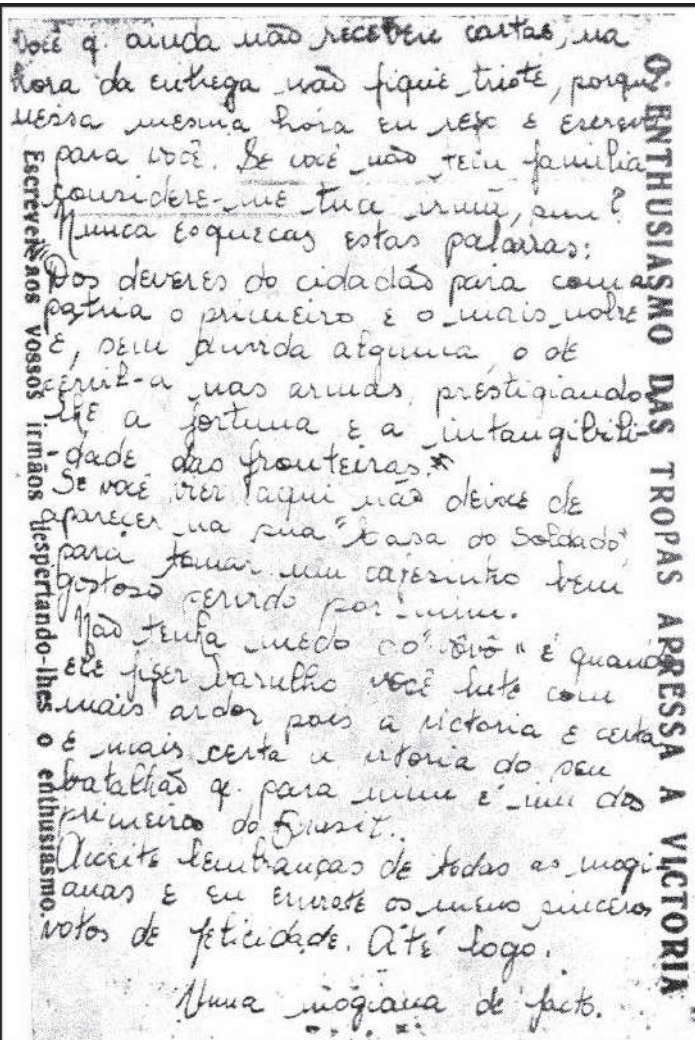 Você q. ainda não recebeu cartas, na
hora da entrega não fique triste, porque
nessa mesma hora eu rezo e escrevo
para você. Se você não tem familia
considere-me tua irmã, sim?
Nunca esqueças estas palavras:
"Dos deveres do cidadão para com a
patria o primeiro e o mais nobre
é, sem duvida alguma, o de
servil-a nas armas, prestigiando
lhe a fortuna e a intangibili-
-dade das fronteiras."
Se você vier aqui não deixe de
apareçer na sua "Casa do Soldado"
para tomar um cafesinho bem
gostoso servido por mim.
Não tenha medo do "vôvô" e quando
ele fizer barulho você lute com
mais ardor pois a victoria é certa
e mais certa a vitoria do seu
batalhão q. para mim é um dos
primeiros do Brasil.
Aceite lembranças de todas as mogi
anas e eu envio-te os meus sinceros
votos de felicidade. Até logo.
Uma mogiana de facto.
O ENTHUSIASMO DAS TROPAS APRESSA A VICTORIA
Escrevei aos vossos irmãos despertando-lhes o enthusiasmo.